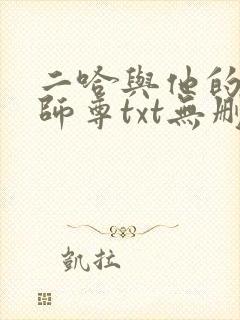 二哈與他的
師尊txt無刪
凱拉